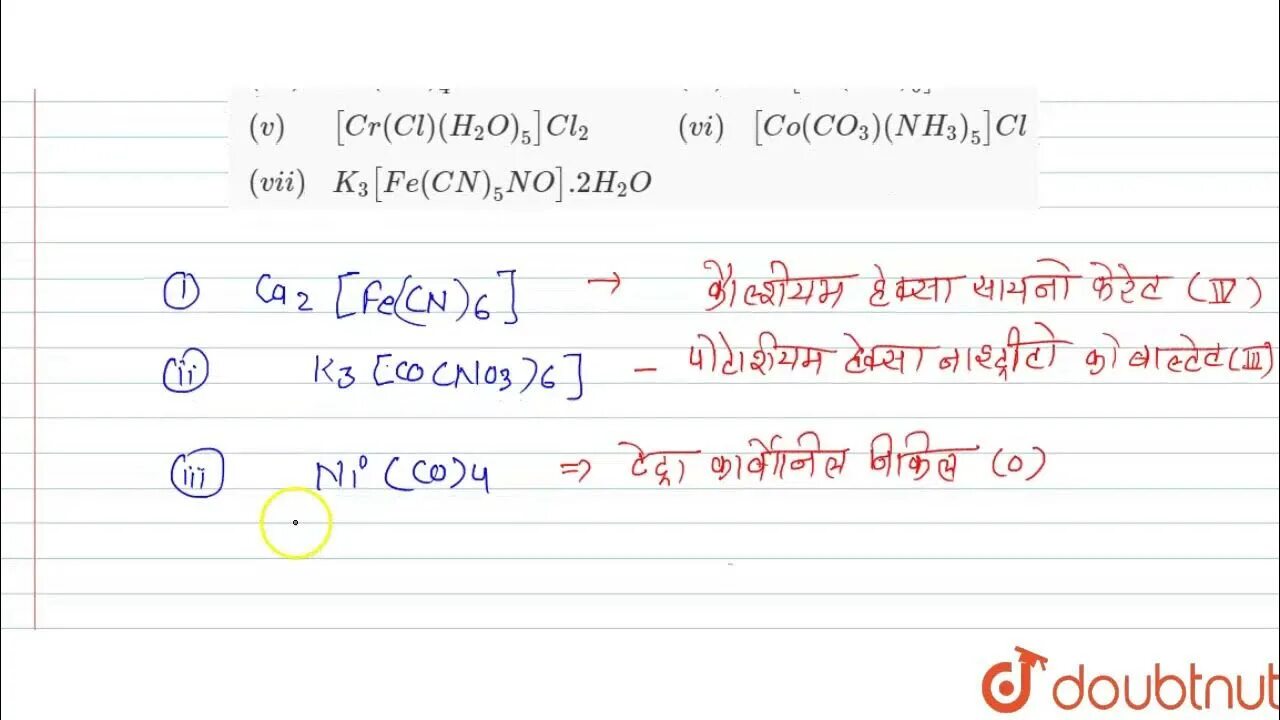 (v) [Cr(Cl)(H₂O)₅]Cl₂ (vi) [Co(CO₃)(NH₃)₅]Cl
(vii) K₃[Fe(CN)₅NO].2H₂O
(i) Ca₂ [Fe(CN)6] → कैल्शीयम हेक्सा सायनो फेरेट (IV)
(ii) K3 [CO(NO3)6] – पोटाशीयम हेक्सा नाइट्रीटो कोबाल्टेट (III)
(iii) Ni⁰ (CO)4 ⇒ टेट्रा कार्बोनिल निकिल (0)
doubtnut